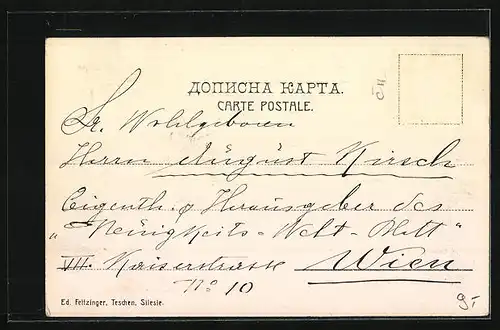 ДОПИСНА КАРТА.
CARTE POSTALE.
Sr. Wohlgeboren
Herrn August Kirsch
Eigenth. & Herausgeber des
„Neuigkeits-Welt-Blatt"
VII. Kaiserstrasse Wien
No 10
Ed. Feitzinger, Teschen, Silesie.